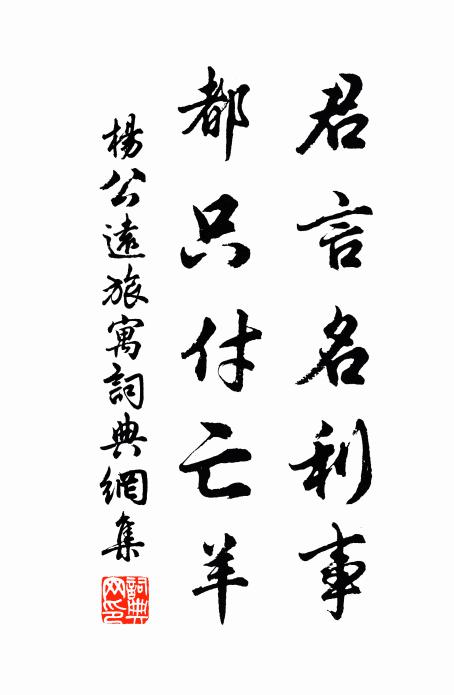 君言名利事
都只付亡羊
楊公遠旅寓詞典網集
詞典
网印